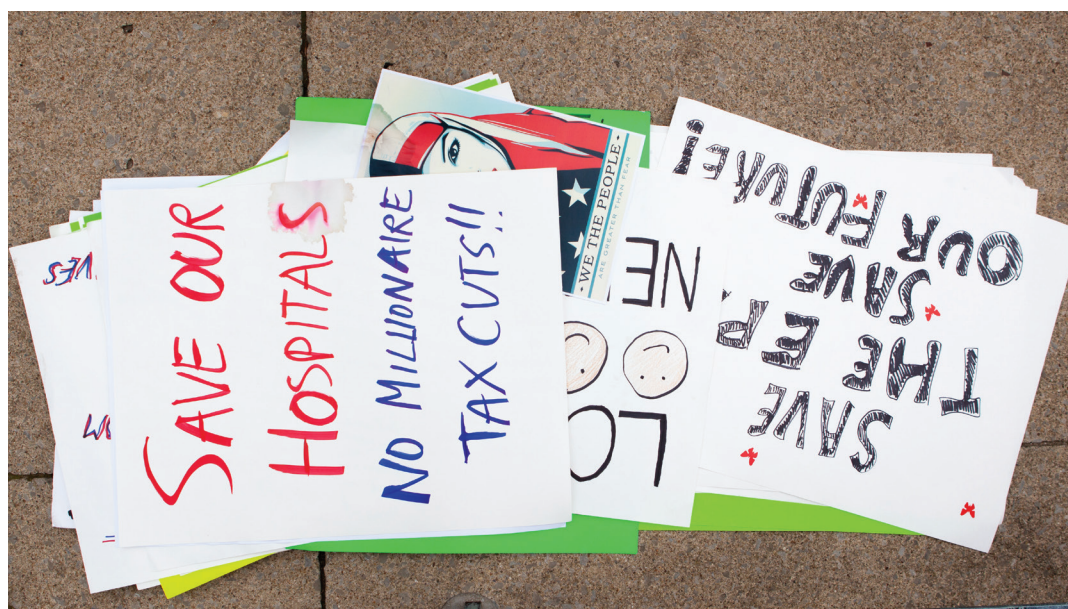 SAVE OUR
HOSPITALS
NO MILLIONAIRE
TAX CUTS!!
- WE THE PEOPLE -
ARE GREATER THAN FEAR
SAVE
THE EP
SAVE
OUR FUTURE!
LO
NE